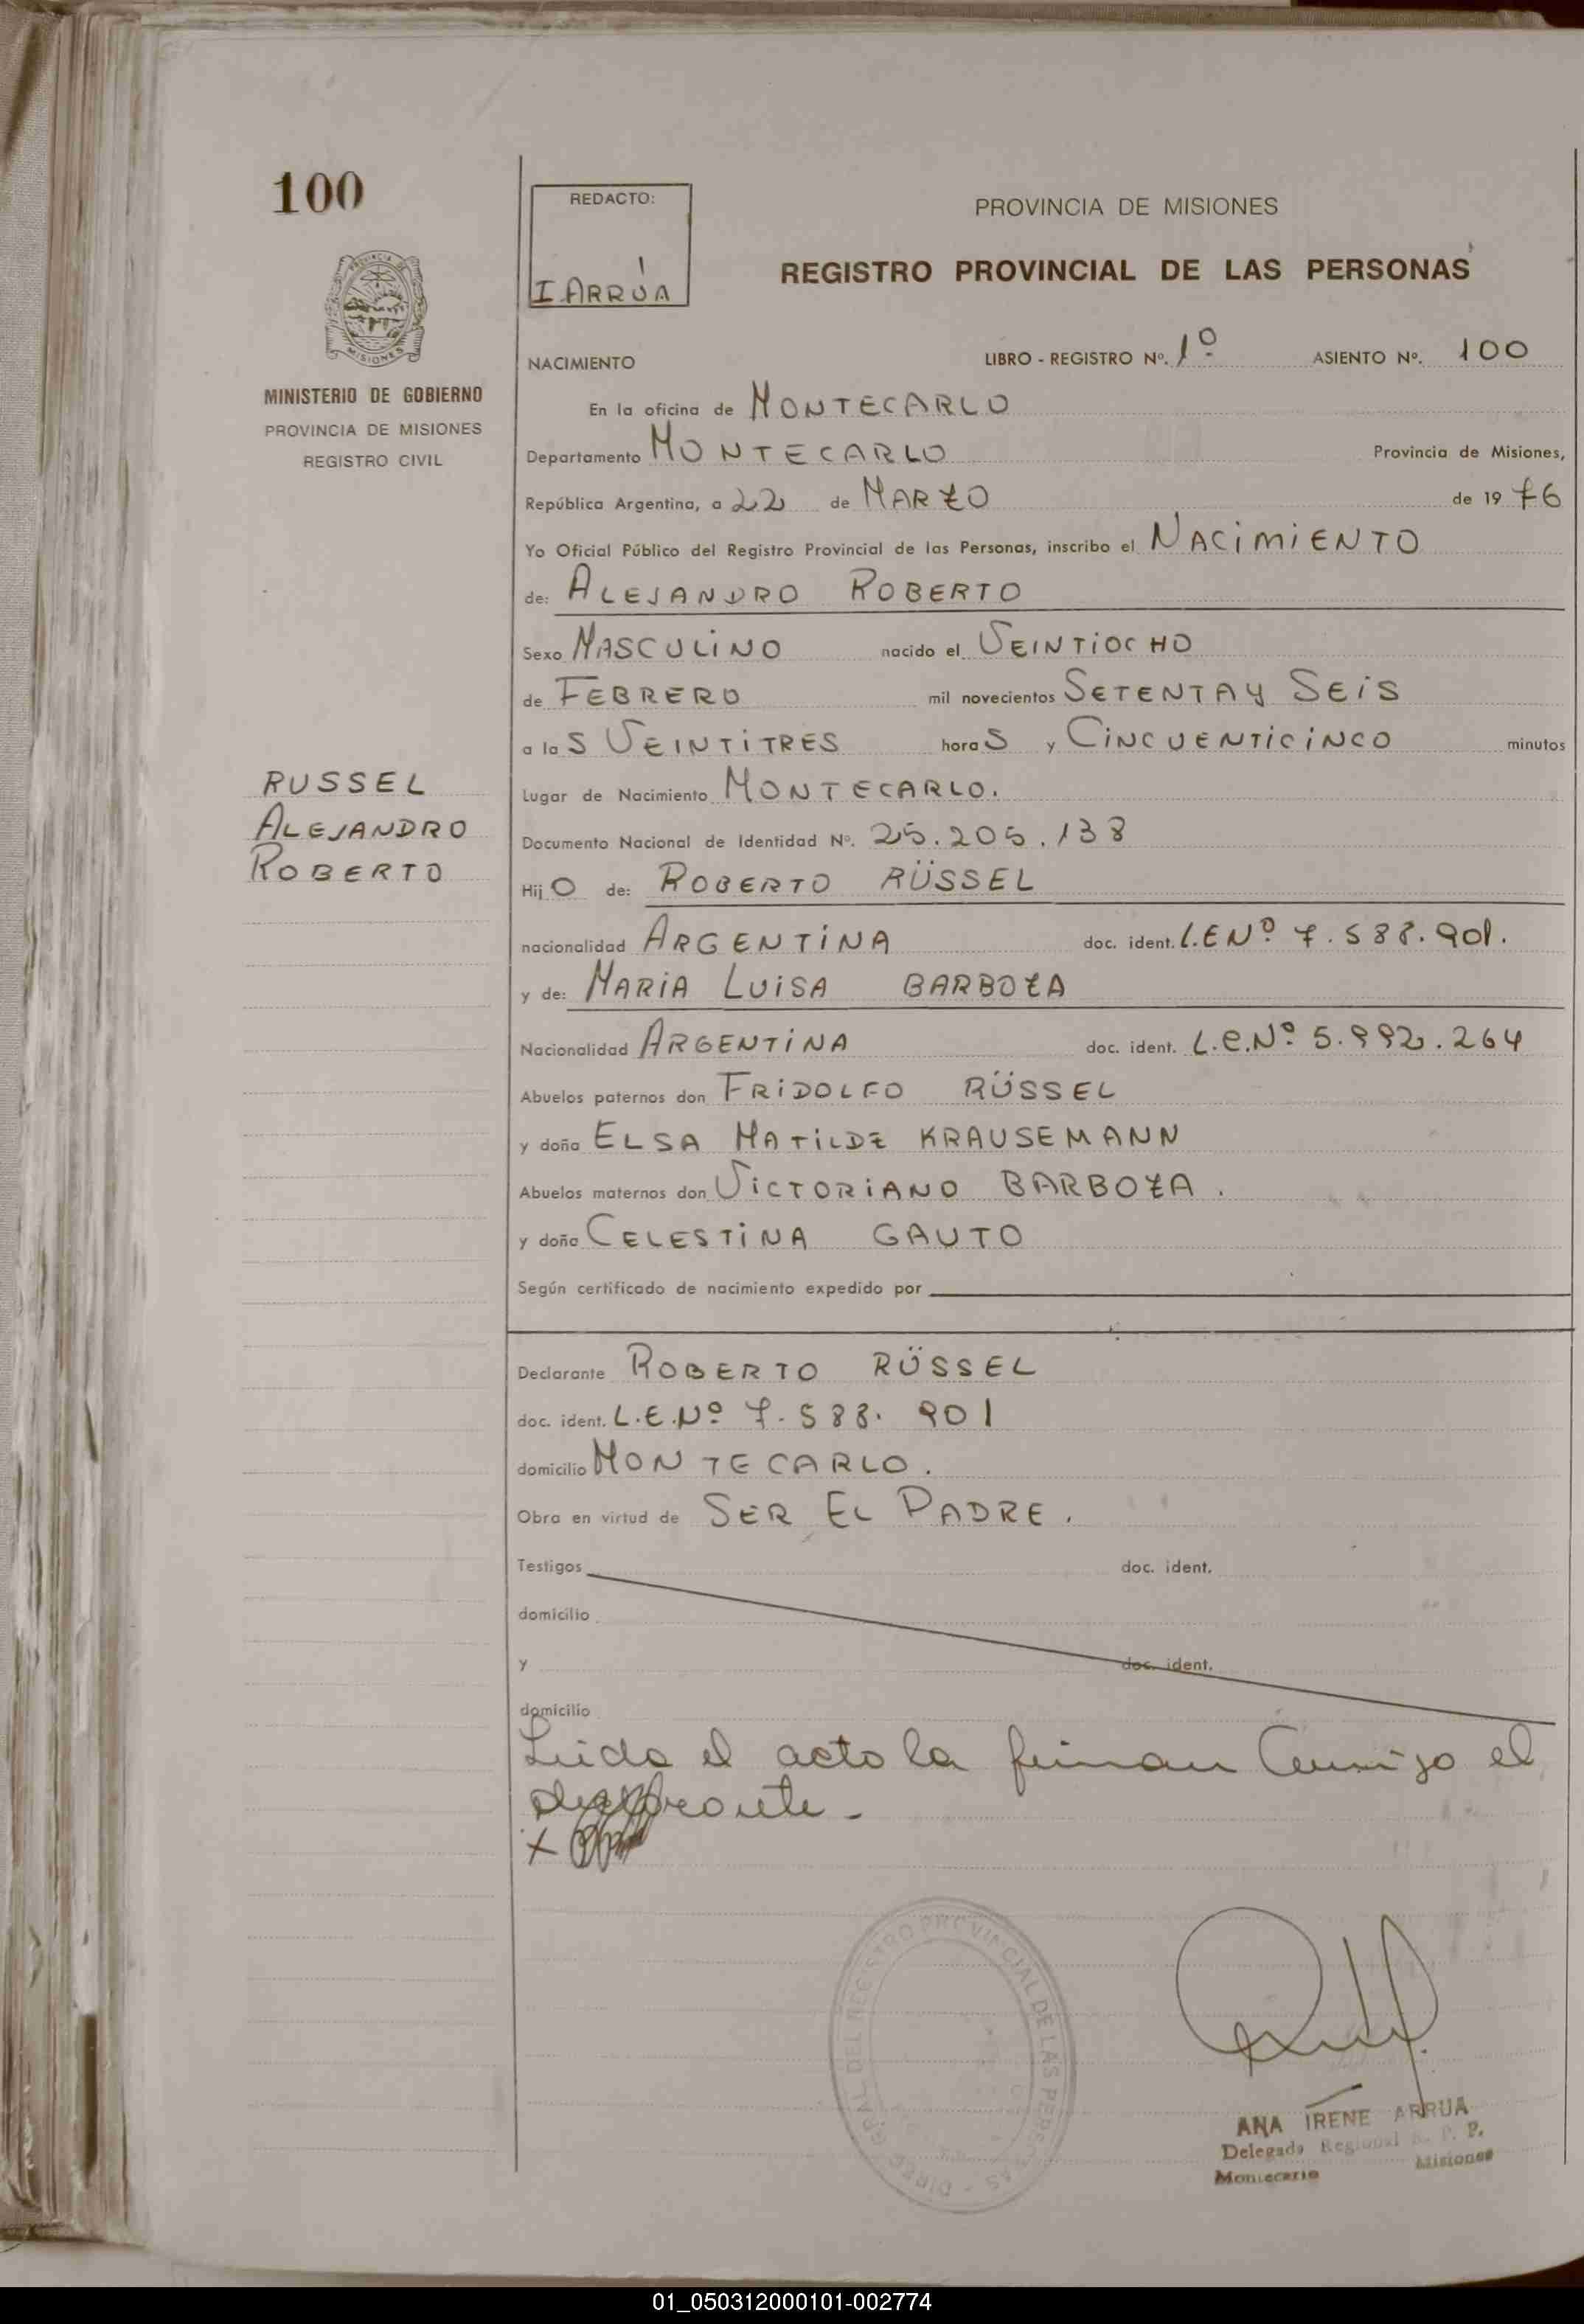 100
PROVINCIA DE
MISIONES
MINISTERIO DE GOBIERNO
PROVINCIA DE MISIONES
REGISTRO CIVIL
RUSSEL
ALEJANDRO
ROBERTO
REDACTO:
I. ARRÚA
PROVINCIA DE MISIONES
REGISTRO PROVINCIAL DE LAS PERSONAS
NACIMIENTO LIBRO - REGISTRO Nº. 1º ASIENTO Nº. 100
En la oficina de MONTECARLO
Departamento MONTECARLO Provincia de Misiones,
República Argentina, a 22 de MARZO de 19 76
Yo Oficial Público del Registro Provincial de las Personas, inscribo el NACIMIENTO
de: ALEJANDRO ROBERTO
Sexo MASCULINO nacido el VEINTIOCHO
de FEBRERO mil novecientos SETENTA Y SEIS
a las VEINTITRES horas y CINCUENTICINCO minutos
Lugar de Nacimiento MONTECARLO.
Documento Nacional de Identidad Nº. 25.205.138
Hijo de: ROBERTO RÜSSEL
nacionalidad ARGENTINA doc. ident. L.E Nº 7.588.901.
y de: MARIA LUISA BARBOZA
Nacionalidad ARGENTINA doc. ident. L.C. Nº 5.992.264
Abuelos paternos don FRIDOLFO RÜSSEL
y doña ELSA MATILDE KRAUSEMANN
Abuelos maternos don VICTORIANO BARBOZA.
y doña CELESTINA GAUTO
Según certificado de nacimiento expedido por
Declarante ROBERTO RÜSSEL
doc. ident. L.E. Nº 7.588.901
domicilio MONTECARLO.
Obra en virtud de SER EL PADRE.
Testigos doc. ident.
domicilio
y doc. ident.
domicilio
Leida el acto la firman Conmigo el
declarante.-
DIREC. GRAL. DEL REGISTRO PROVINCIAL DE LAS PERSONAS -
ANA IRENE ARRUA
Delegada Regional R. P. P.
Montecarlo Misiones
01_050312000101-002774